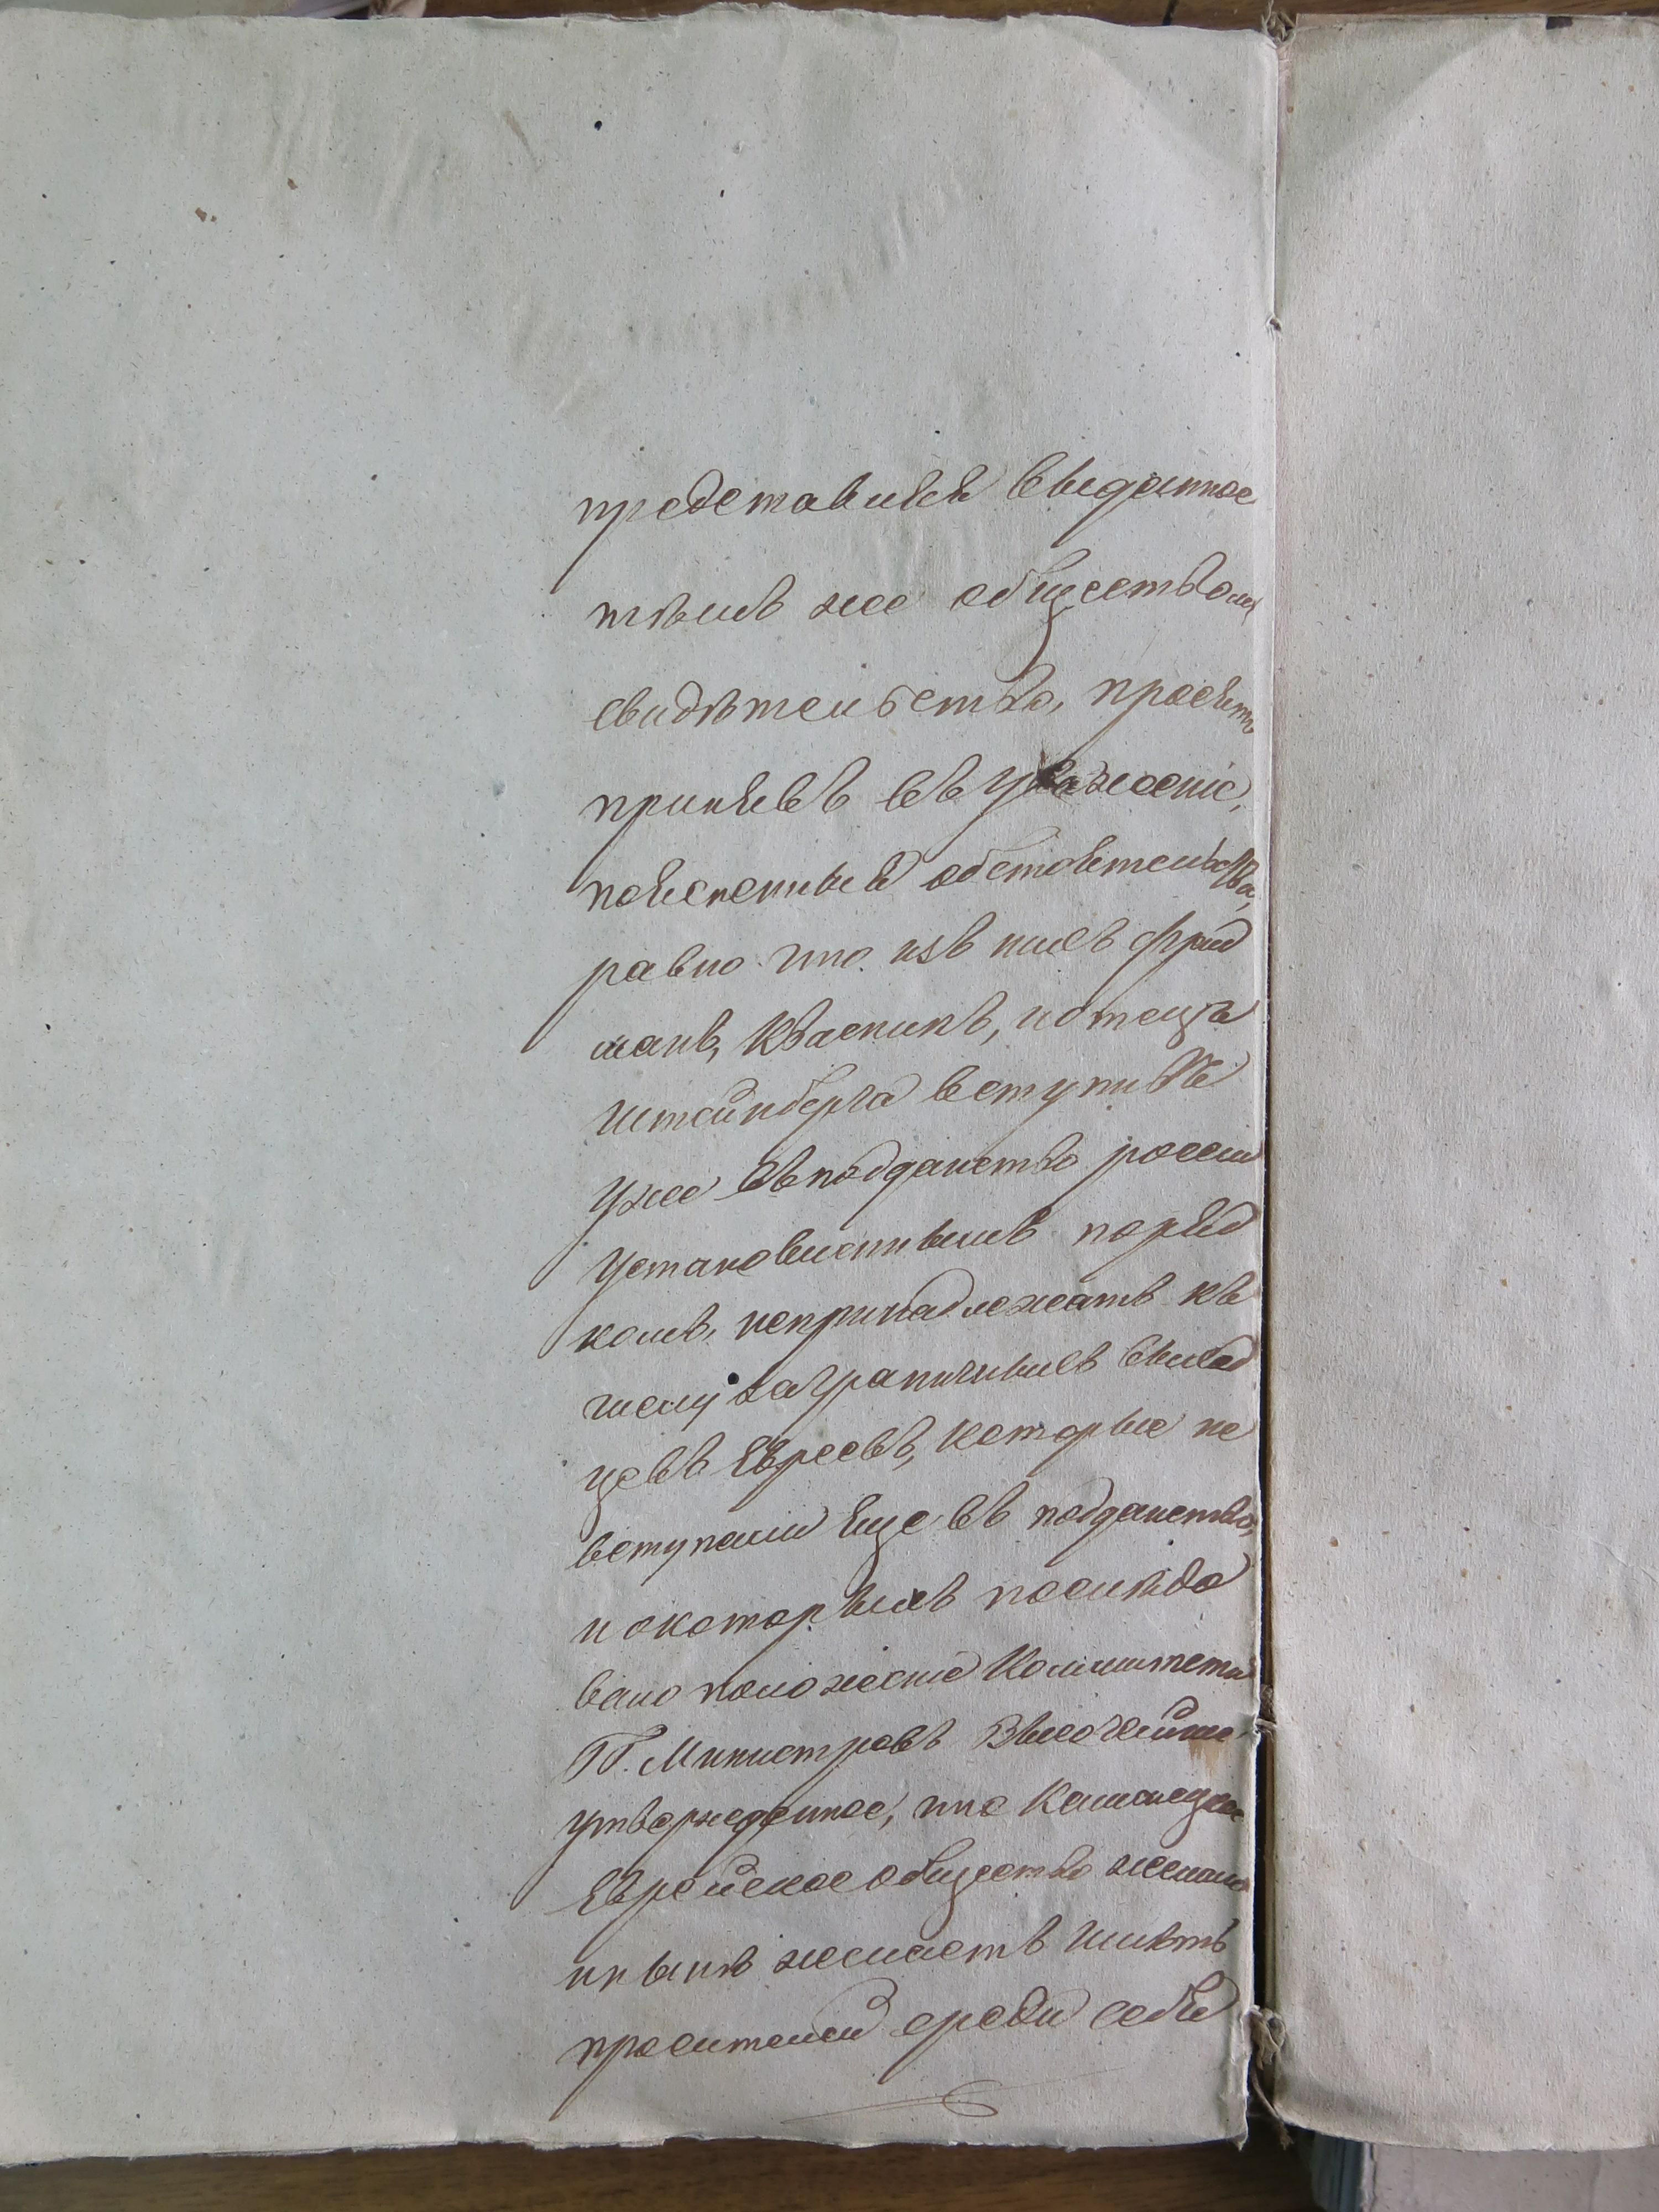 представляя выданное
тѣмъ же обществомъ
свидѣтельство, просятъ
принявъ въ уваженіе,
поясненныя обстоятельства,
равно что изъ нихъ Фрид
манъ, Квасникъ, и отецъ
Штейнберга вступивъ
уже въ подданство россіи
установленнымъ поряд
комъ, непринадлежатъ къ
числу заграничныхъ выход
цевъ Евреевъ, которые не
вступили еще въ подданство,
и окоторыхъ послѣдо
вало положеніе Комитета
ГГ. Министровъ Высочайше
утвержденное, что Каменецкое
Еврейское общество
нынѣ желаетъ имѣть
просителей среди себя